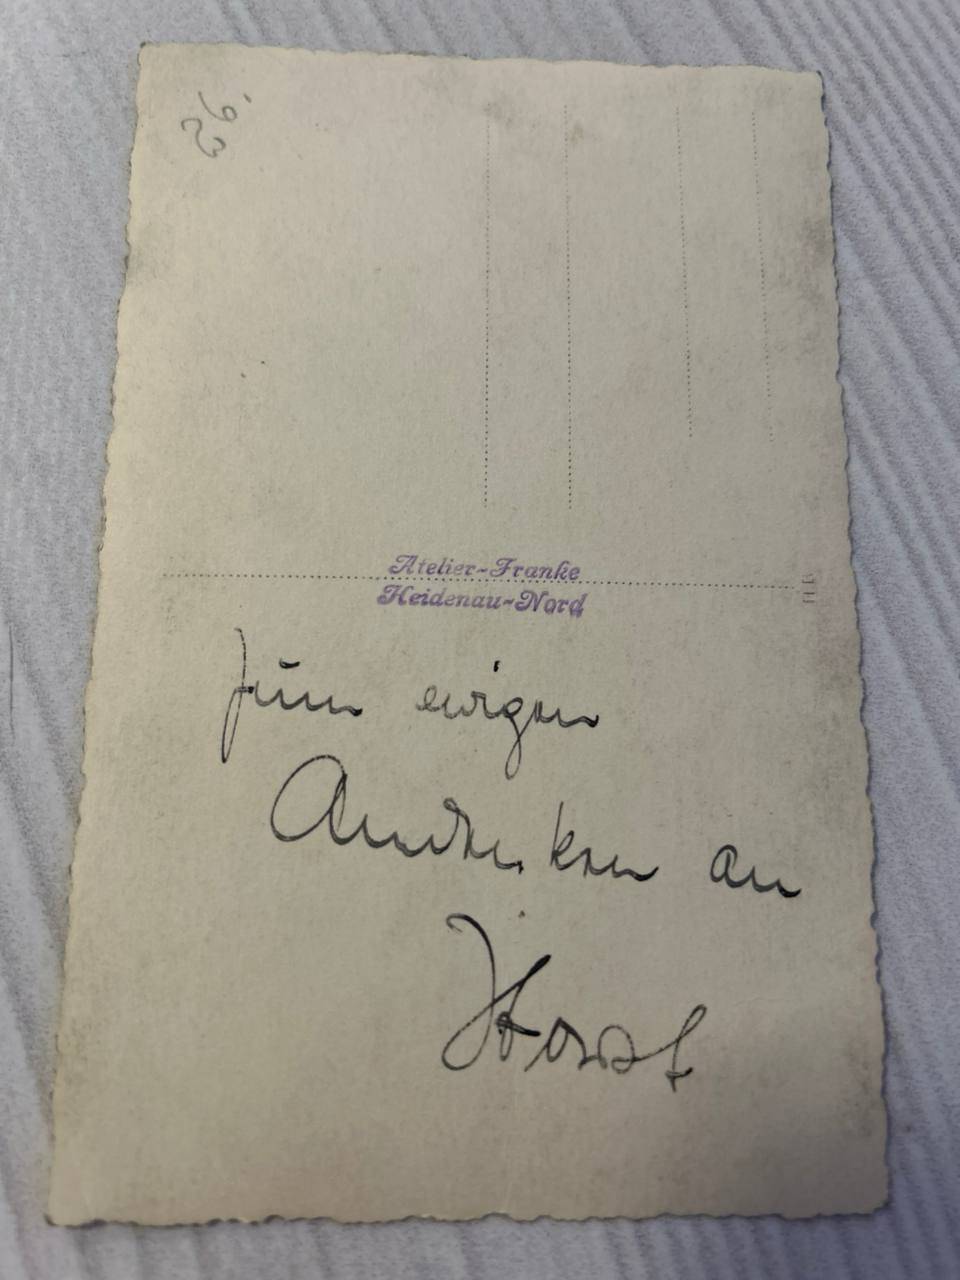 Atelier-Franke
Heidenau-Nord
Zum ewigen
Andenken an
Horst